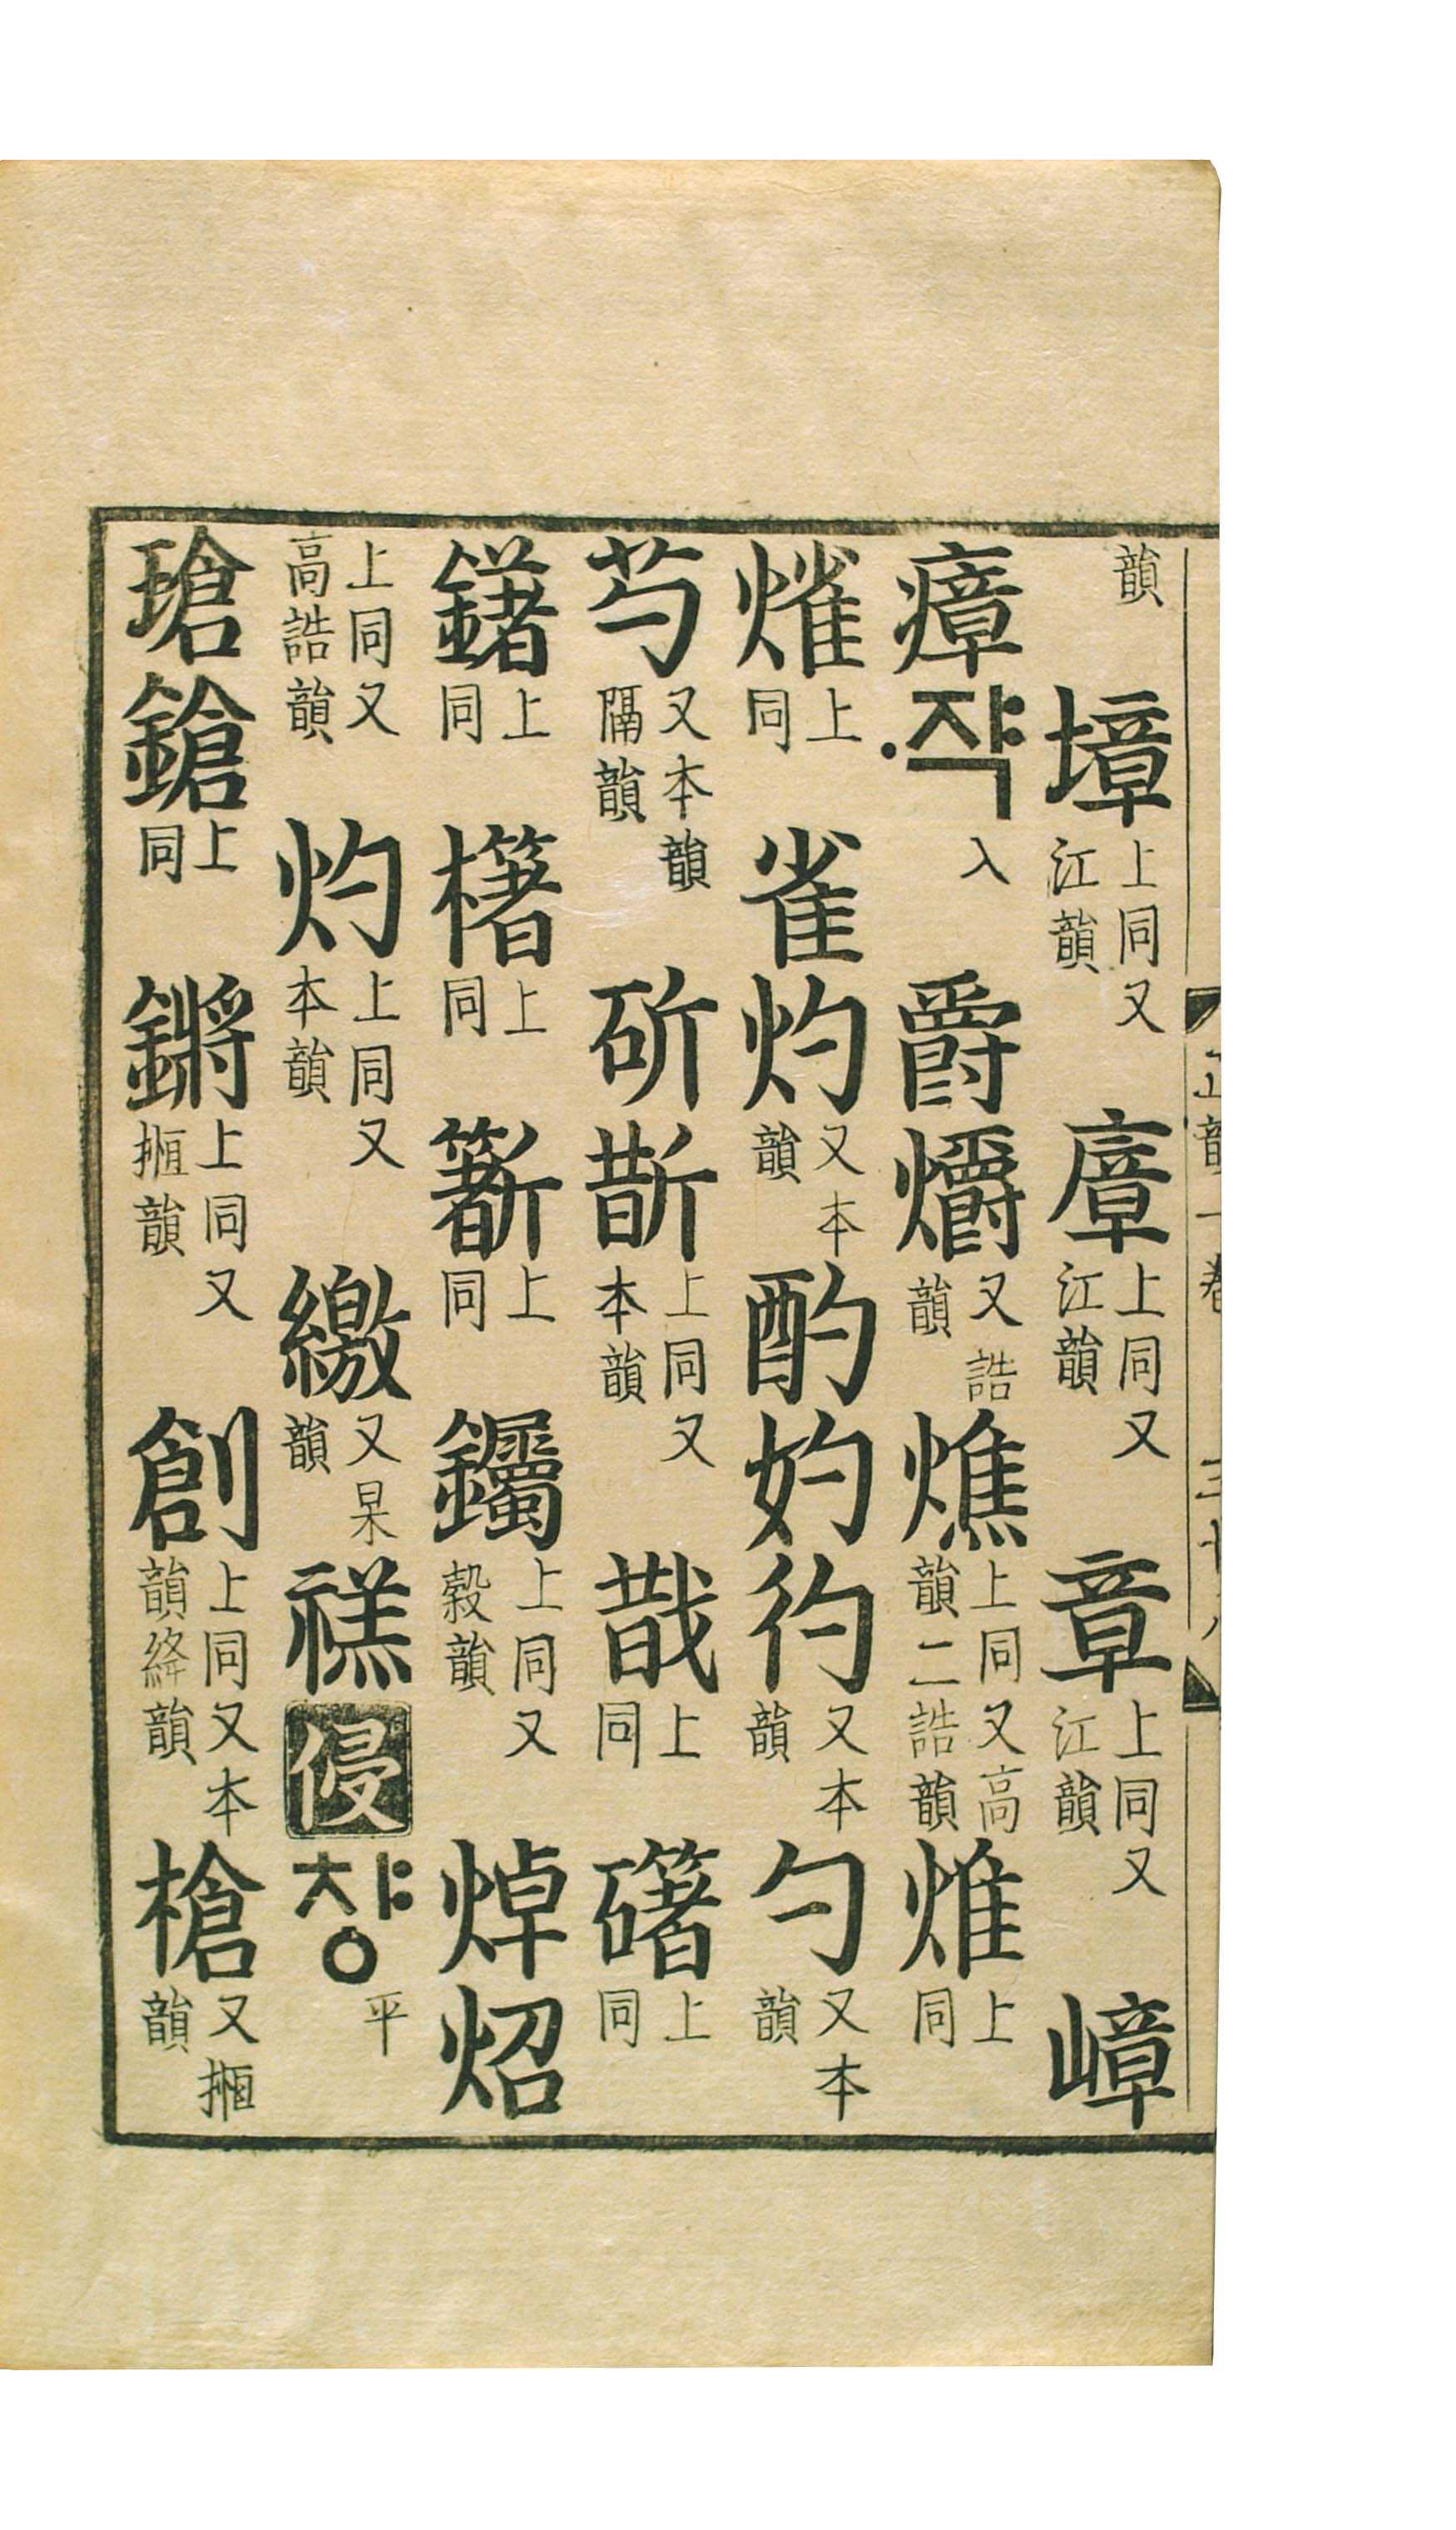 韻 墇 上同又江韻 上同又江韻 章 上同又江韻 嶂
瘴 ·쟉 入 爵 爝 又誥韻 燋 上同又高韻二誥韻 上同
上同 雀 灼 又本韻 酌 妁 彴 又本韻 勺 又本韻
芍 又本韻隔韻 斫 斮 上同又本韻 上同 上同
鐯 上同 櫡 上同 上同 钃 上同又穀韻 焯 炤
上同又高誥韻 灼 上同又本韻 繳 又杲韻 禚 侵 챵 平
瑲 鎗 上同 鏘 上同又搄韻 創 上同又本韻絳韻 槍 又搄韻